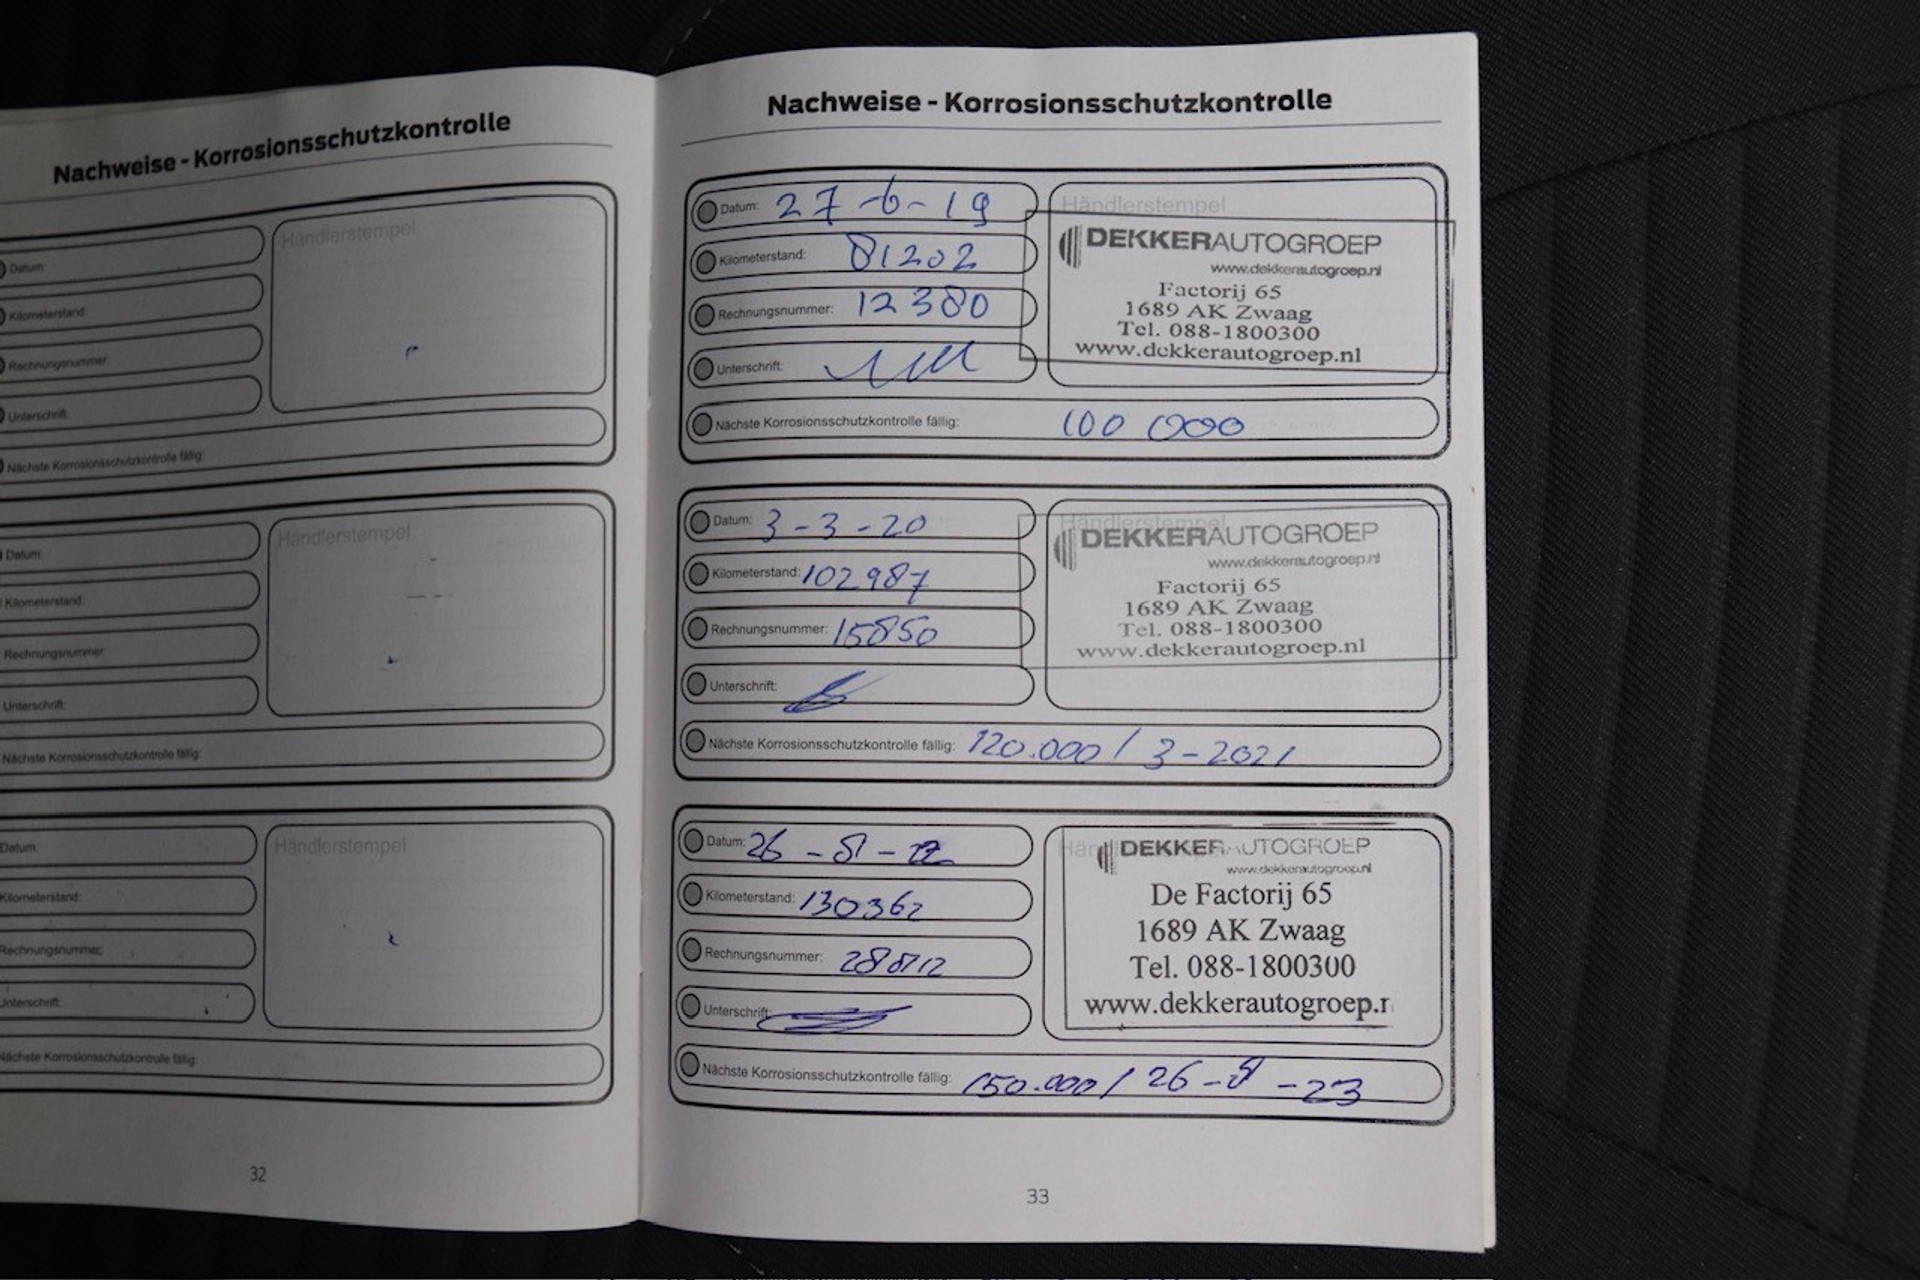 Nachweise - Korrosionsschutzkontrolle
Datum:
Händlerstempel
Kilometerstand:
Rechnungsnummer:
Unterschrift:
Nächste Korrosionsschutzkontrolle fällig:
Datum:
Händlerstempel
Kilometerstand:
Rechnungsnummer:
Unterschrift:
Nächste Korrosionsschutzkontrolle fällig:
Datum:
Händlerstempel
Kilometerstand:
Rechnungsnummer:
Unterschrift:
Nächste Korrosionsschutzkontrolle fällig:
32
Nachweise - Korrosionsschutzkontrolle
Datum: 27-6-19
Kilometerstand: 81202
Rechnungsnummer: 12380
Unterschrift:
Händlerstempel
DEKKERAUTOGROEP
www.dekkerautogroep.nl
Factorij 65
1689 AK Zwaag
Tel. 088-1800300
www.dekkerautogroep.nl
Nächste Korrosionsschutzkontrolle fällig: 100 000
Datum: 3-3-20
Kilometerstand: 102987
Rechnungsnummer: 15850
Unterschrift:
Händlerstempel
DEKKERAUTOGROEP
www.dekkerautogroep.nl
Factorij 65
1689 AK Zwaag
Tel. 088-1800300
www.dekkerautogroep.nl
Nächste Korrosionsschutzkontrolle fällig: 120.000 / 3-2021
Datum: 26-8-22
Kilometerstand: 130362
Rechnungsnummer: 28812
Unterschrift:
DEKKERAUTOGROEP
www.dekkerautogroep.nl
De Factorij 65
1689 AK Zwaag
Tel. 088-1800300
www.dekkerautogroep.n
Nächste Korrosionsschutzkontrolle fällig: 150.000 / 26-8-23
33